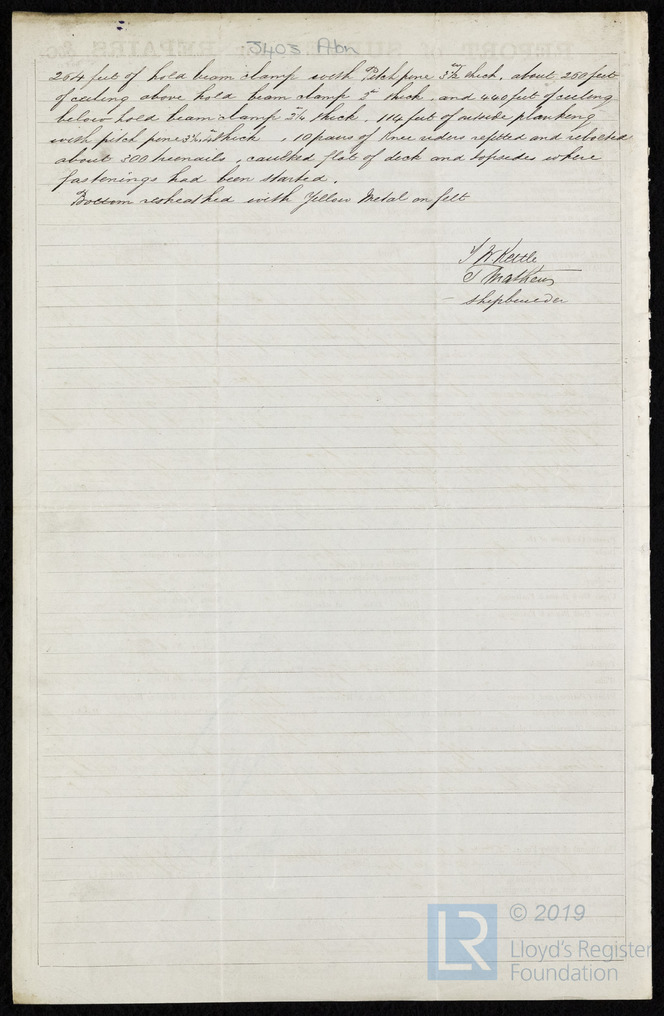 3403 Abn
264 feet of hold beam clamp with Pitch pine 3½ thick, about 260 feet
of ceiling above hold beam clamp 2" thick, and 440 feet of ceiling
below hold beam clamp 2¼ thick. 114 feet of outside planking
with pitch pine thick 10 pairs of Knee riders refitted and rebolted
about 300 treenails, caulked flat of deck and topsides where
fastenings had been started.
Bottom resheathed with Yellow Metal on felt
J W. Kettle
T Mathews
Shipbuilder
© 2019
LR
Lloyd's Register
Foundation